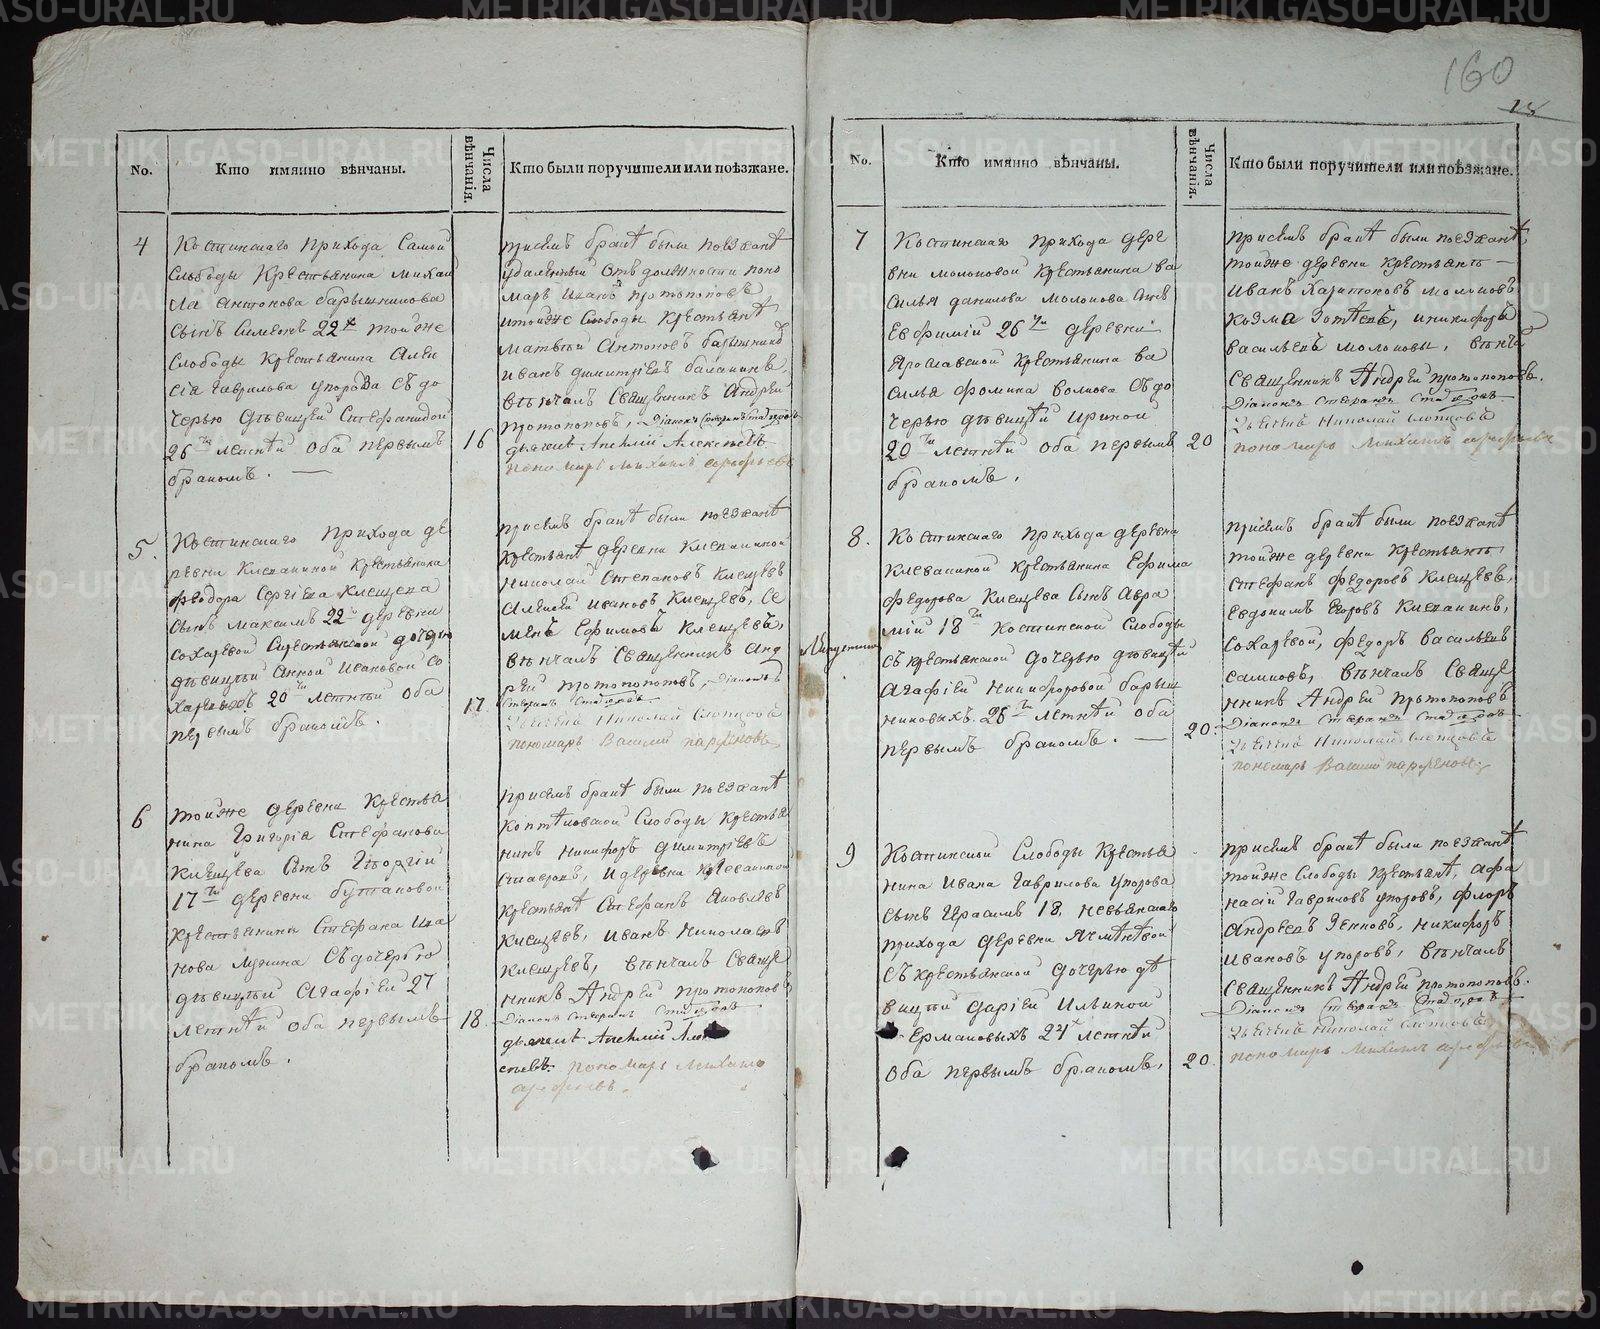 160
18
No.
Кто имянно вѣнчаны.
Числа вѣнчанія.
Кто были поручители или поѣзжане.
4
Костинскаго прихода Самой
Слободы Крестьянина михаи
ла антонова барышникова
сынъ Симеонъ 22х тойже
Слободы крестьянина Алек
сѣя Гаврилова упорова съ до
черью дѣвицей Стефанидой
26ти летнѣй оба первымъ
бракомъ.
16
присемъ бракѣ были поезжанѣ
удаленный отъ должности поно
марь Иванъ протопоповъ
итойже Слободы крестьянѣ
матвѣй Антоновъ барышник
иванъ димитріевъ балакинъ,
вѣнчалъ Священникъ Андреи
протопоповъ, Діаконъ Стефанъ
дьячекъ Алексѣевъ
пономарь михаилъ
5.
Костинскаго прихода де
ревни Клевакиной крестьянина
феодора Сергіева Клещева
сынъ максимъ 22 деревни
Сохаревой крестьянской дочерью
дѣвицѣй анной ивановой Со
харевыхъ 20ти летнѣй оба
первымъ бракомъ.
17
присемъ бракѣ были поезжанѣ
крестьянѣ деревни Клевакиной
николай Степановъ Клещевъ
Алексѣй ивановъ Клещевъ, Се
менъ Ефимовъ Клещевъ,
вѣнчалъ Священникъ Анд
рей протопоповъ, Діаконъ
Стефанъ
Николай Слепцовъ
пономарь Василій парфеновъ
6
тойже деревни крестья
нина Григорія Стефанова
Клещева Сынъ Георгій
17ти деревни бутаковой
крестьянина Стефана Ива
нова Лукина Съ дочерью
дѣвицѣй агафіей 27
летнѣй оба первымъ
бракомъ.
18
присемъ бракѣ были поезжанѣ
коптѣловской Слободы крестья
нинъ никифоръ димитріевъ
Ставровъ, и деревни клевакиной
крестьянѣ Стефанъ Яковлевъ
Клещевъ, иванъ николаевъ
Клещевъ, вѣнчалъ Свяще
нникъ Андреи протопоповъ
Діаконъ Стефанъ
дьячекъ
пономарь михаилъ
No.
Кто имянно вѣнчаны.
Числа вѣнчанія.
Кто были поручители или поѣзжане.
7
Костинскаго прихода дере
вни молоковой Крестьянина ва
силья данилова молокова Сынъ
Евфимій 26ти деревни
Ярославской крестьянина ва
силья фомина волкова Съ до
черью дѣвицѣй ириной
20ти летнѣй оба первымъ
бракомъ.
20
присемъ бракѣ были поезжанѣ
тойже деревни крестьянѣ —
иванъ Харитоновъ молоковъ
козма Зотеевъ, и никифоръ
васильевъ молоковы, вѣнча
Священникъ Андреи протопоповъ.
Діаконъ Стефанъ
Николай Слепцовъ
пономарь михаилъ
8.
Костинскаго прихода деревни
клевакиной крестьянина Ефима
федорова Клещева Сынъ Авра
мій 18ти Костинской Слободы
съ крестьянской дочерью дѣвицѣй
агафіей никифоровой барыш
никовыхъ 26ти летнѣй оба
первымъ бракомъ. —
20.
присемъ бракѣ были поезжанѣ
тойже деревни крестьянѣ
Стефанъ федоровъ Клещевъ,
Евдокимъ Егоровъ Клевакинъ,
Сохаревой, федоръ васильевъ
вѣнчалъ Свяще
нникъ Андреи протопоповъ
Діаконъ Стефанъ
Николай Слепцовъ
пономарь Василій парфеновъ
9
Костинской Слободы крестья
нина Ивана Гаврилова упорова
сынъ Ираклій 18. невьянскаго
прихода деревни Ячменевой
съ крестьянской дочерью дѣ
вицѣй даріей ильиной
Ермаковыхъ 24х летнѣй
оба первымъ бракомъ.
20
присемъ бракѣ были поезжанѣ
тойже Слободы крестьянѣ, афа
насій Гавриловъ упоровъ, флоръ
Андреевъ Зенковъ, никифоръ
ивановъ упоровъ, вѣнчалъ
Священникъ Андреи протопоповъ.
Діаконъ Стефанъ
Николай Слепцовъ
пономарь михаилъ
METRIKI.GASO-URAL.RU